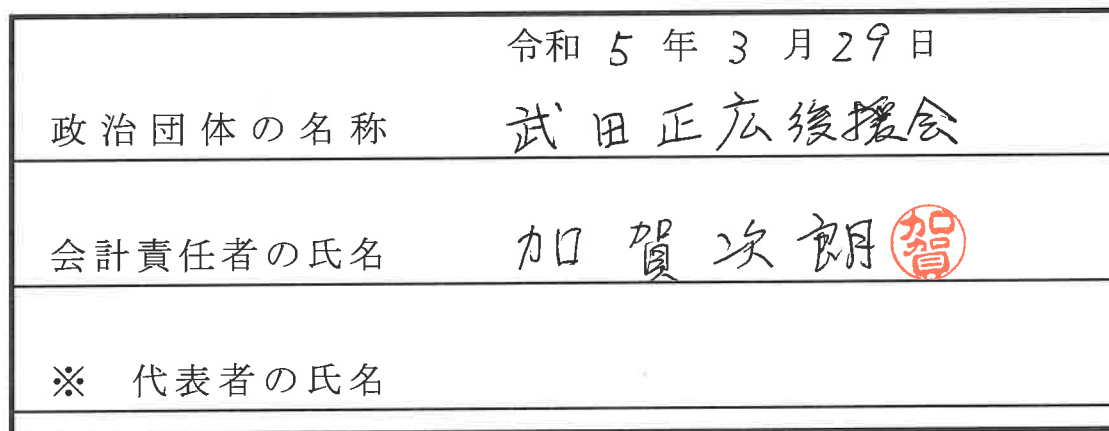 令和 5 年 3 月 29 日
政治団体の名称 武田正広後援会
会計責任者の氏名 加賀次朗 加賀
※ 代表者の氏名